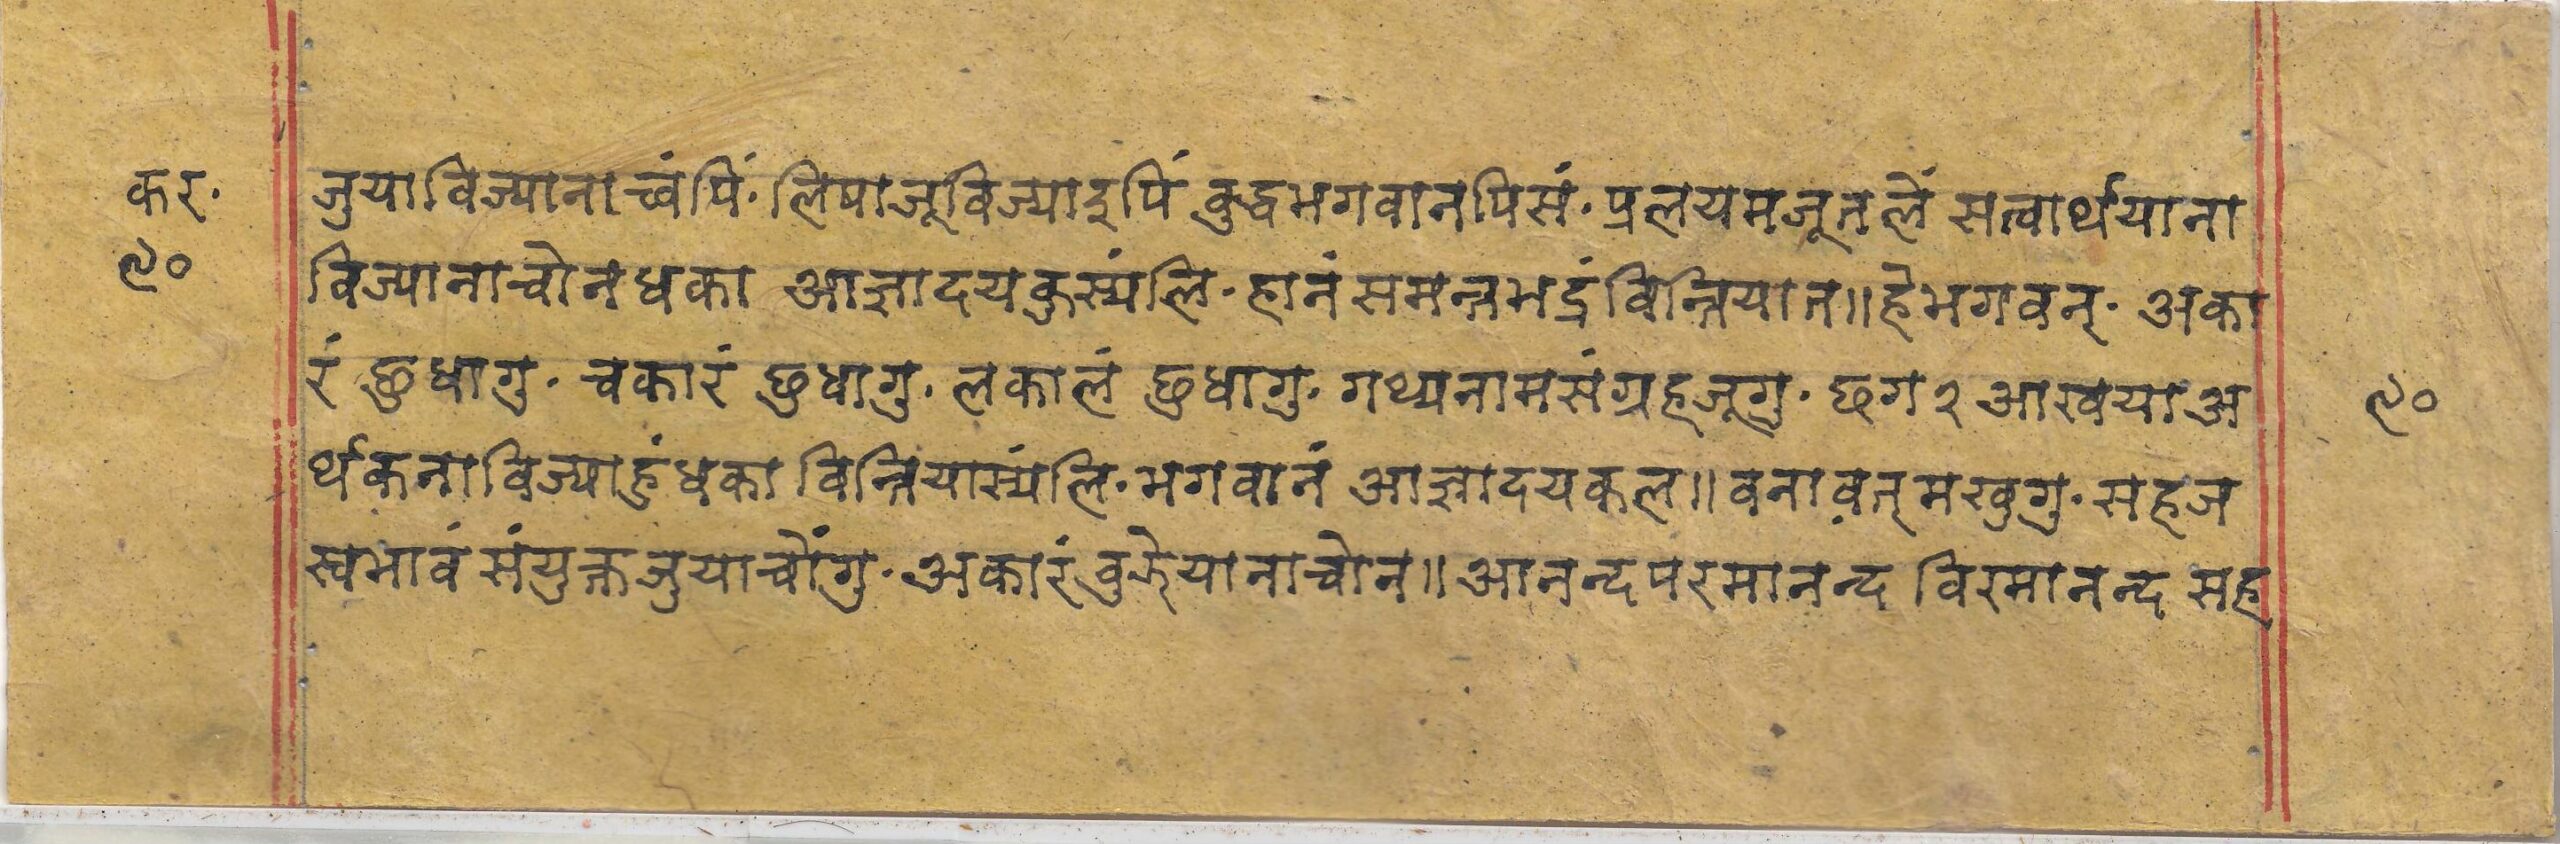 कर. जुयाविज्यानाच्वंपिं. लिपाजूविज्याइपिं वुद्धभगवानपिसं. प्रलयमजूतलें सत्वार्थयाना
९० विज्यानाचोनधका आज्ञादयकुस्यंलि. हानं समन्तभद्रं विन्तियात॥ हे भगवन्. अका
रं छुधागु. चकारं छुधागु. लकालं छुधागु. गथ्यनामसंग्रहजूगु. छग२ आखयाअ ९०
र्थकनाविज्याहुंधका विन्तियास्यंलि. भगवानं आज्ञादयकल॥ वनावत्मखुगु. सहज
स्वभावं संयुक्तजुयाचोंगु. अकारं वुझेयानाचोन॥ आनन्दपरमानन्द विरमानन्द सह